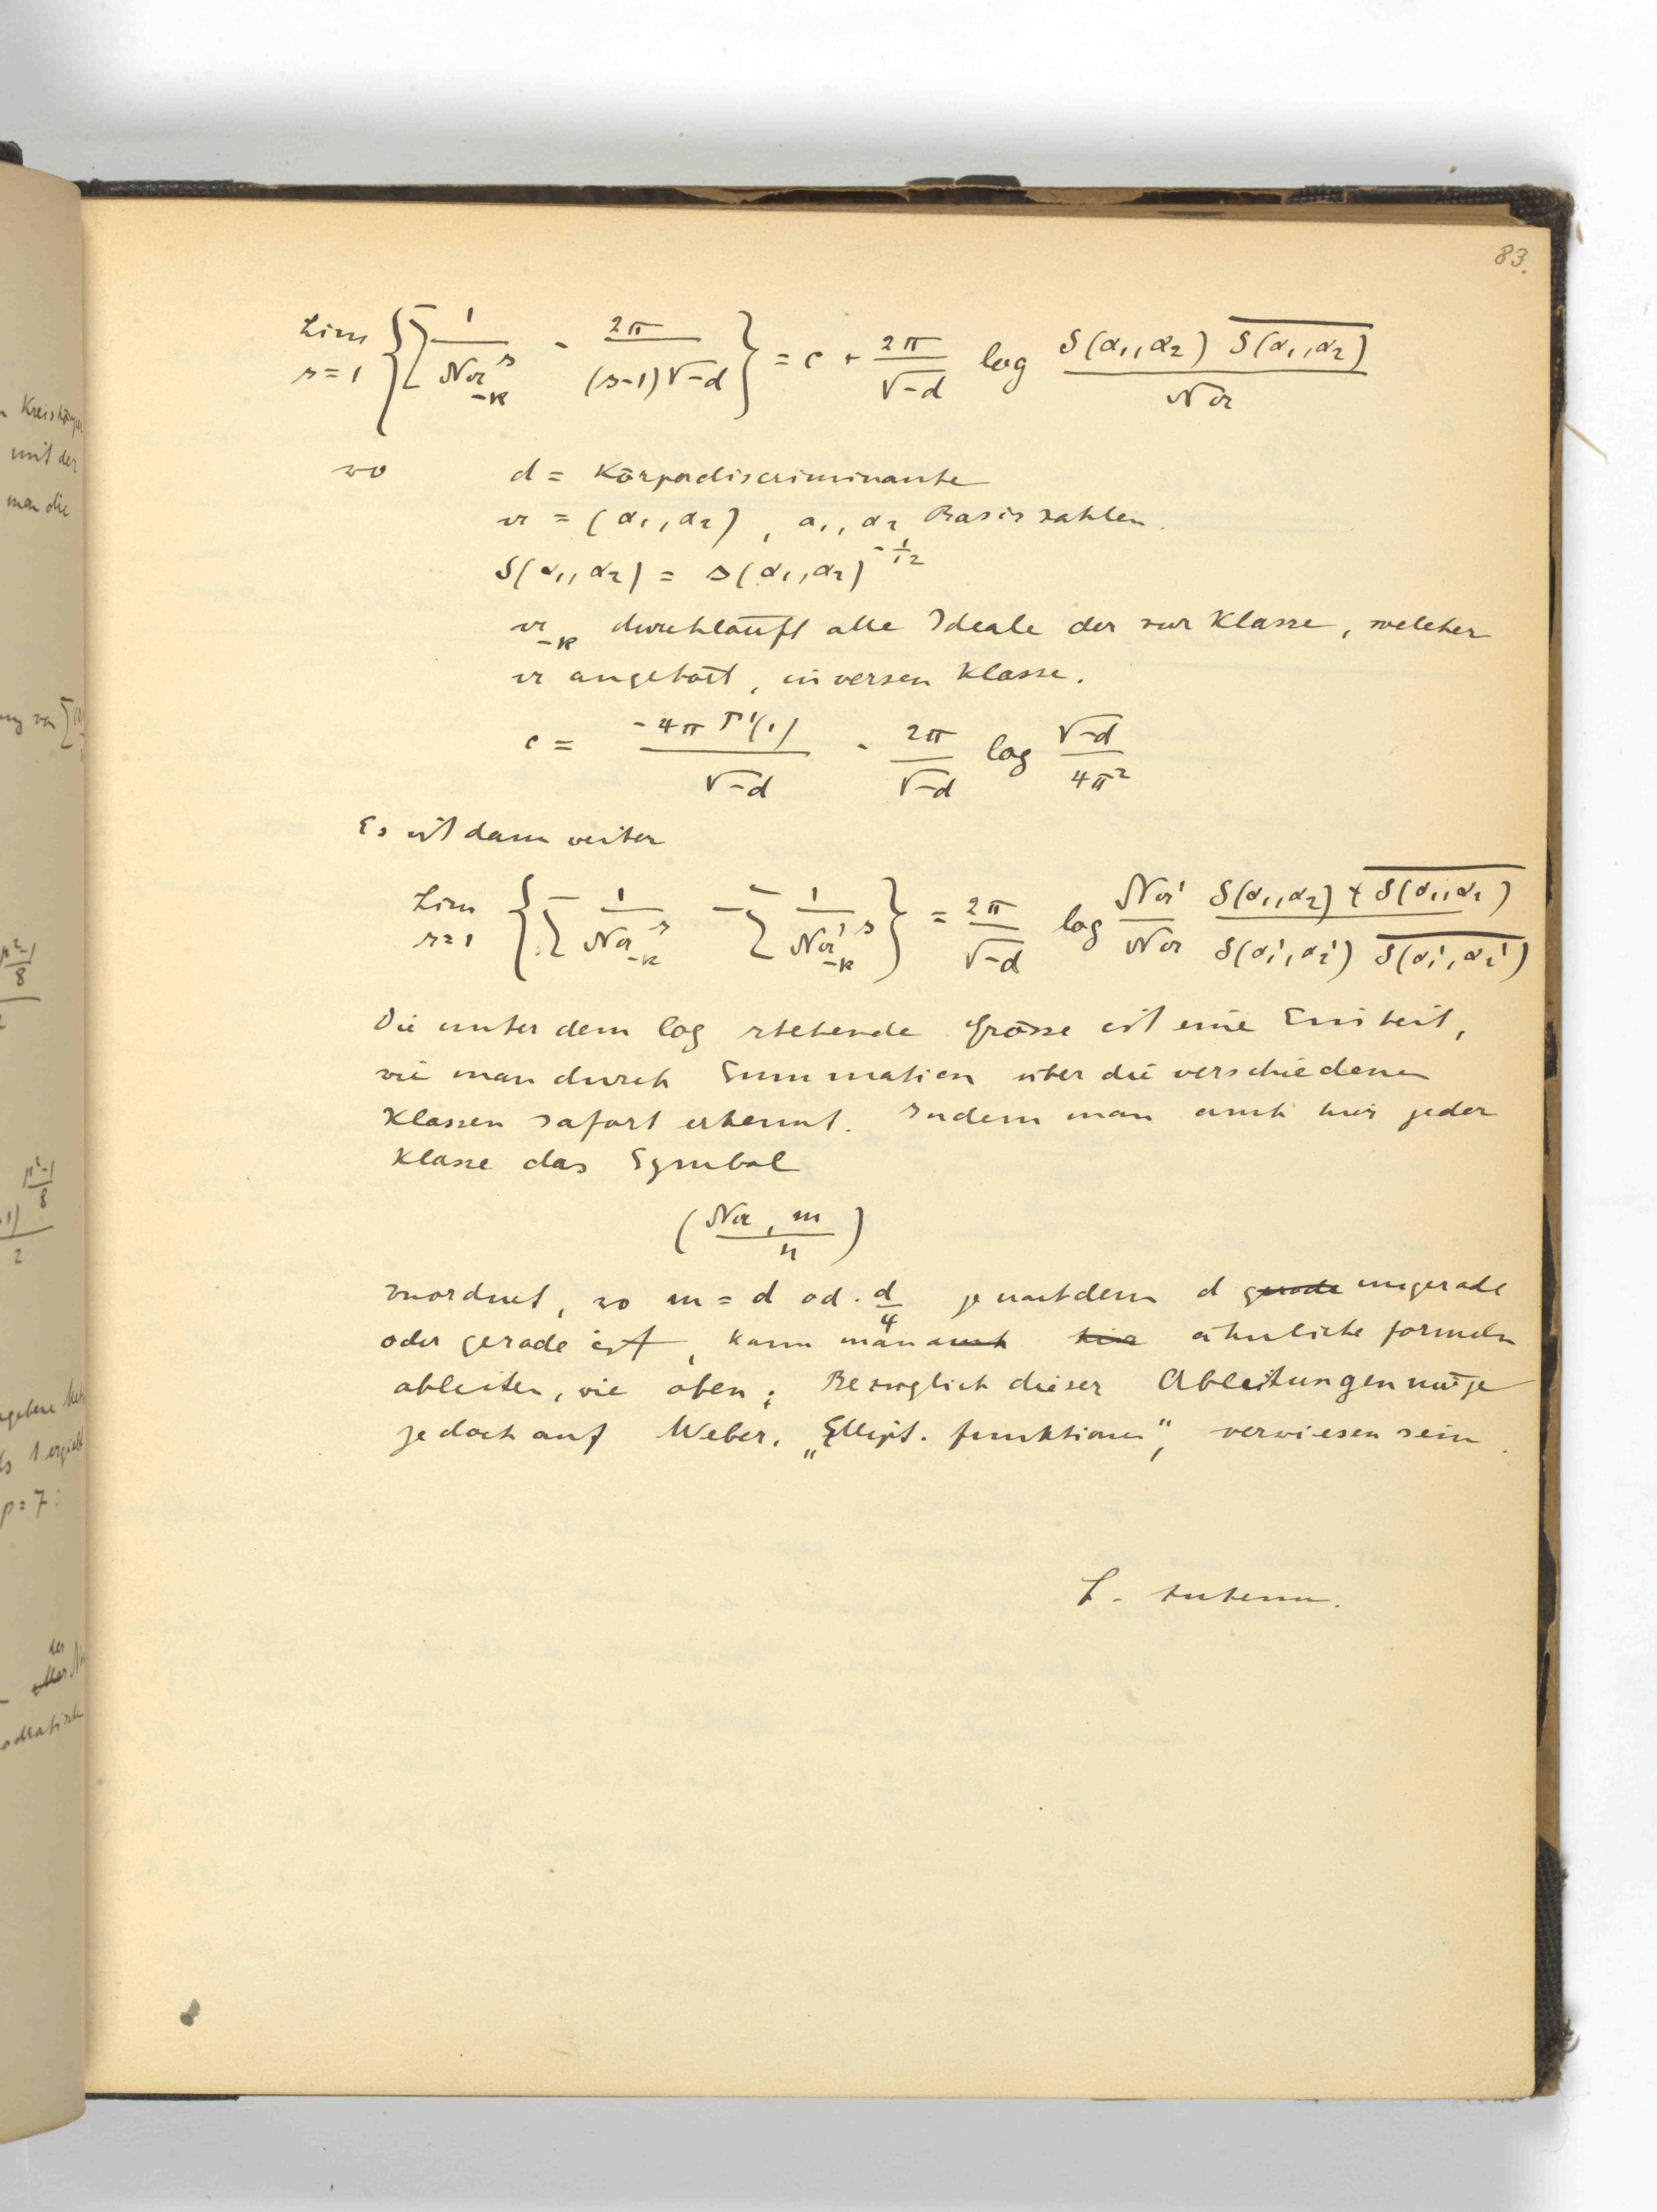 83.
Lim s=1 { ∑ 1/N𝔞_{-k}^s - 2π/((s-1)√-d) } = c + 2π/√-d log δ(α₁,α₂) \overline{δ(α₁,α₂)} / N𝔞
wo d = Körperdiscriminante
𝔞 = (α₁, α₂), α₁, α₂ Basiszahlen.
δ(α₁, α₂) = Δ(α₁, α₂)^{-1/12}
𝔞_{-k} durchläuft alle Ideale der zur Klasse, welcher
𝔞 angehört, inversen Klasse.
c = -4π Γ'(1)/√-d - 2π/√-d log √-d/4π²
Es ist dann weiter
Lim s=1 { ∑ 1/N𝔞_{-k}^s - ∑ 1/N𝔞'_{-k}^s } = 2π/√-d log N𝔞'/N𝔞 δ(α₁,α₂) \overline{δ(α₁,α₂)} / δ(α₁',α₂') \overline{δ(α₁',α₂')}
Die unter dem log stehende Grösse ist eine Einheit,
wie man durch Summation über die verschiedenen
Klassen sofort erkennt. Indem man auch hier jeder
Klasse das Symbol
(N𝔞, m / n)
zuordnet, wo m = d od. d/4 je nachdem d gerade ungerade
oder gerade ist, kann man auch hier ähnliche Formeln
ableiten, wie oben; Bezüglich dieser Ableitungen möge
jedoch auf Weber, „Ellipt. Funktionen", verwiesen sein.
Kreiskörper
mit der
man die
p²-1/8
p²-1/8
2
1 ergiebt
p = 7:
der